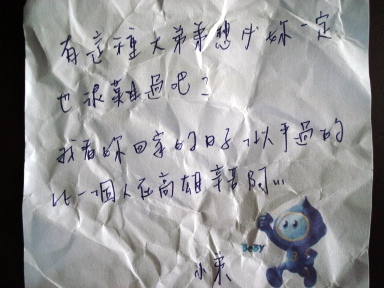 有這種大弟弟想必妳一定
也很難過吧?
我看妳回家的日子似乎過的
比一個人在高雄辛苦啊...
BOBY
小美